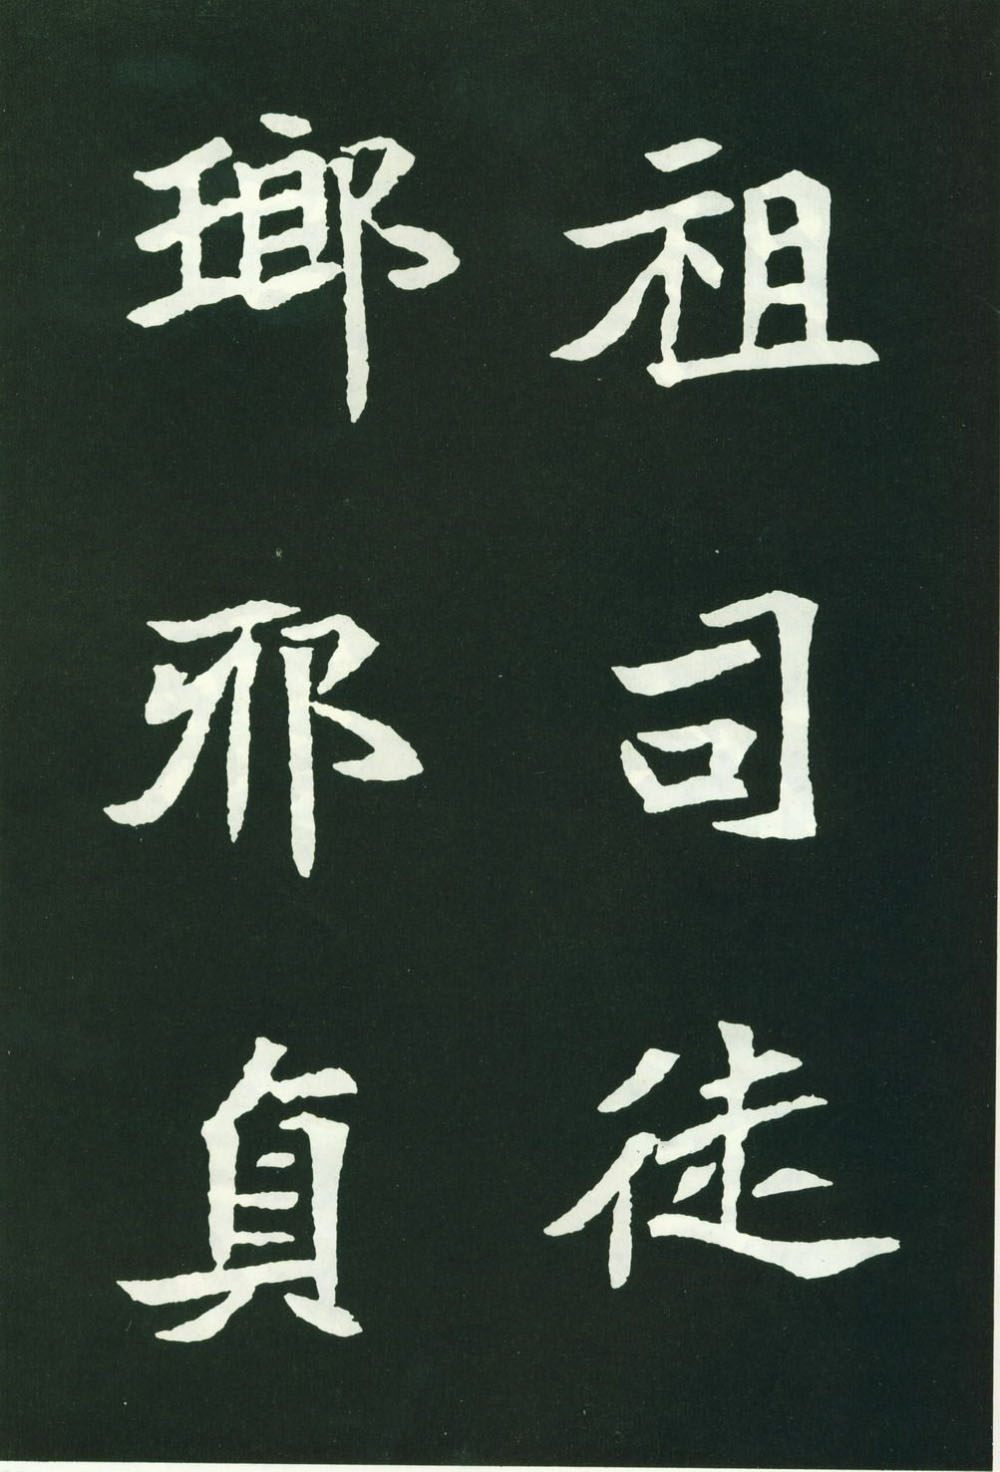 祖司徒
瑯邪貞